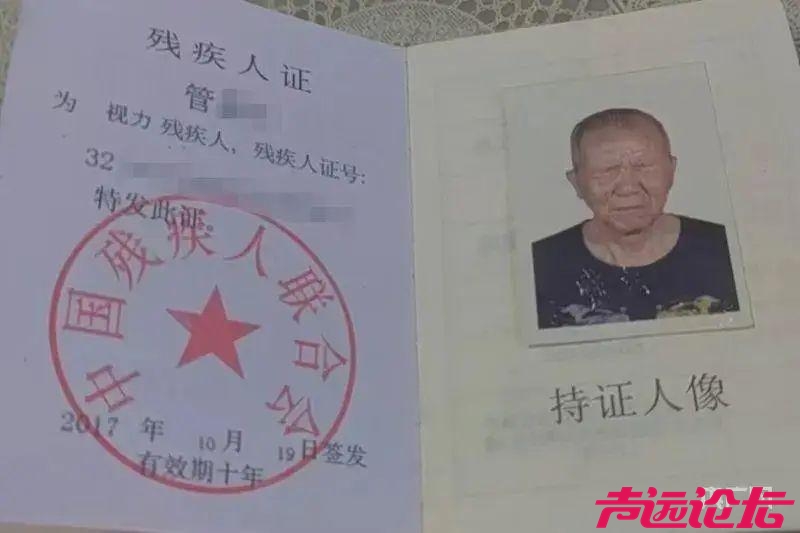 残疾人证
管
为 视力 残疾人，残疾人证号：
32
特发此证。
中国残疾人联合会
2017 年 10月 19日签发
有效期十年
持证人像
声远论坛